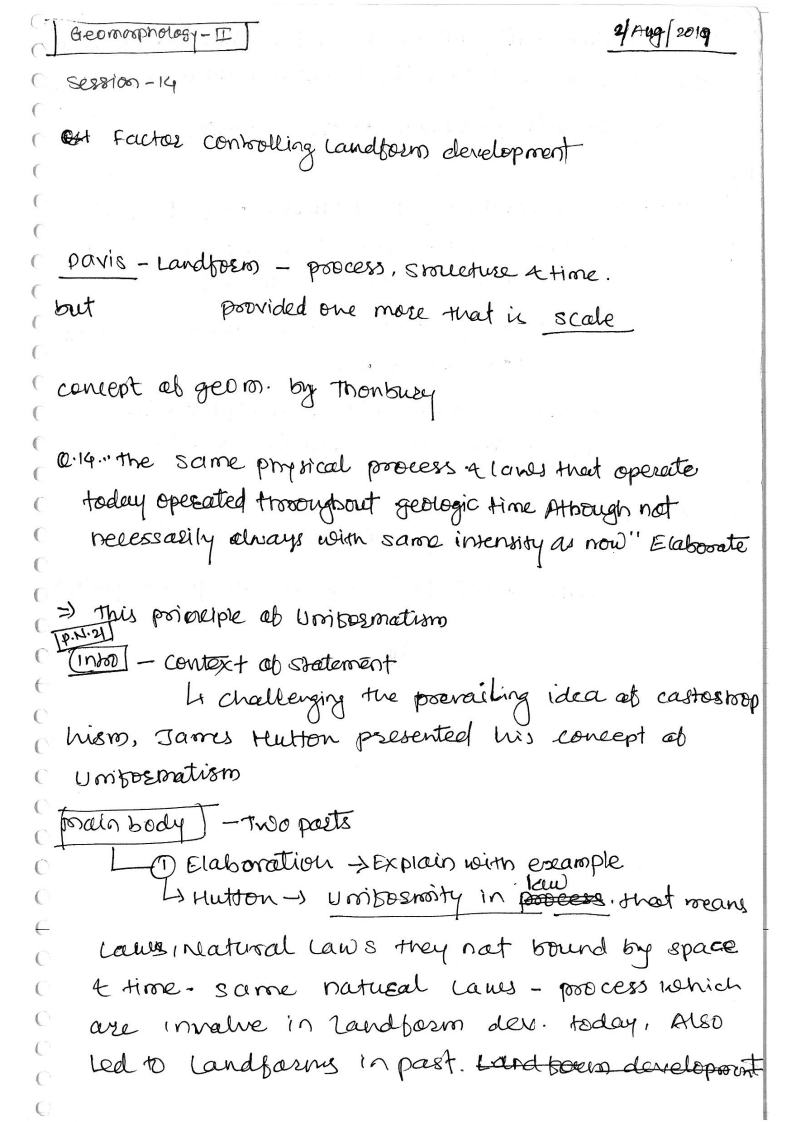 Geomorphology - II
2/Aug/2019
Session - 14
Factor controlling Landform development
Davis - Landform - process, structure & time.
but provided one more that is scale
concept of geom. by Thonbury
Q.14. "The same physical process & laws that operate
today operated throughout geologic time Athough not
necessarily always with same intensity as now" Elaborate
⇒ This principle of Uniformatism
P.N.21
Intro - Context of statement
↳ challenging the prevailing idea of castostrop
hism, James Hutton presented his concept of
Uniformatism
main body - Two parts
① Elaboration → Explain with example
↳ Hutton → Uniformity in process law. that means
Laws, Natural Laws they not bound by space
& time. same natural laws - process which
are involve in Landform dev. today, Also
Led to Landforms in past. Land form development